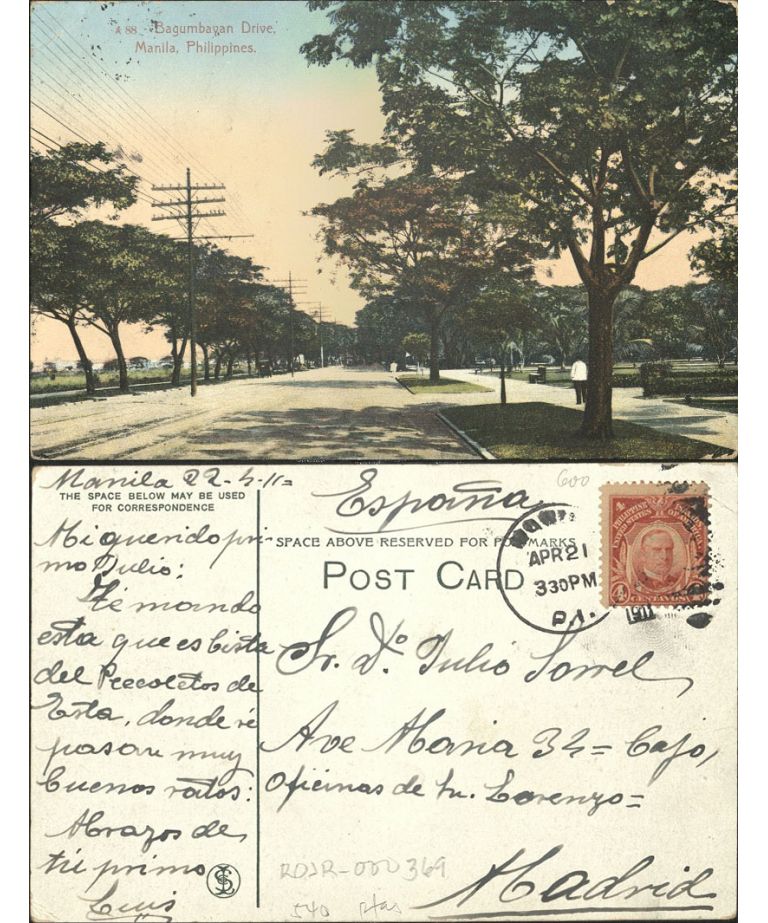 A 88 - Bagumbayan Drive,
Manila, Philippines.
Manila 22-4-11=
THE SPACE BELOW MAY BE USED
FOR CORRESPONDENCE
Mi querido pri-
mo Julio:
Te mando
esta que es bista
del Recoletos de
Esta, donde
pasan muy
buenos ratos:
Abrazos de
tu primo
Luis
España
600
SPACE ABOVE RESERVED FOR POSTMARKS
POST CARD
APR 21
330 PM
P.I.
1911
4
PHILIPPINE
UNITED STATES OF
4 CENTAVOS
Sr. Dº Julio
Ave Maria 32= Bajo,
Oficinas de Lorenzo=
Madrid
RDJR-000369
540 ptas